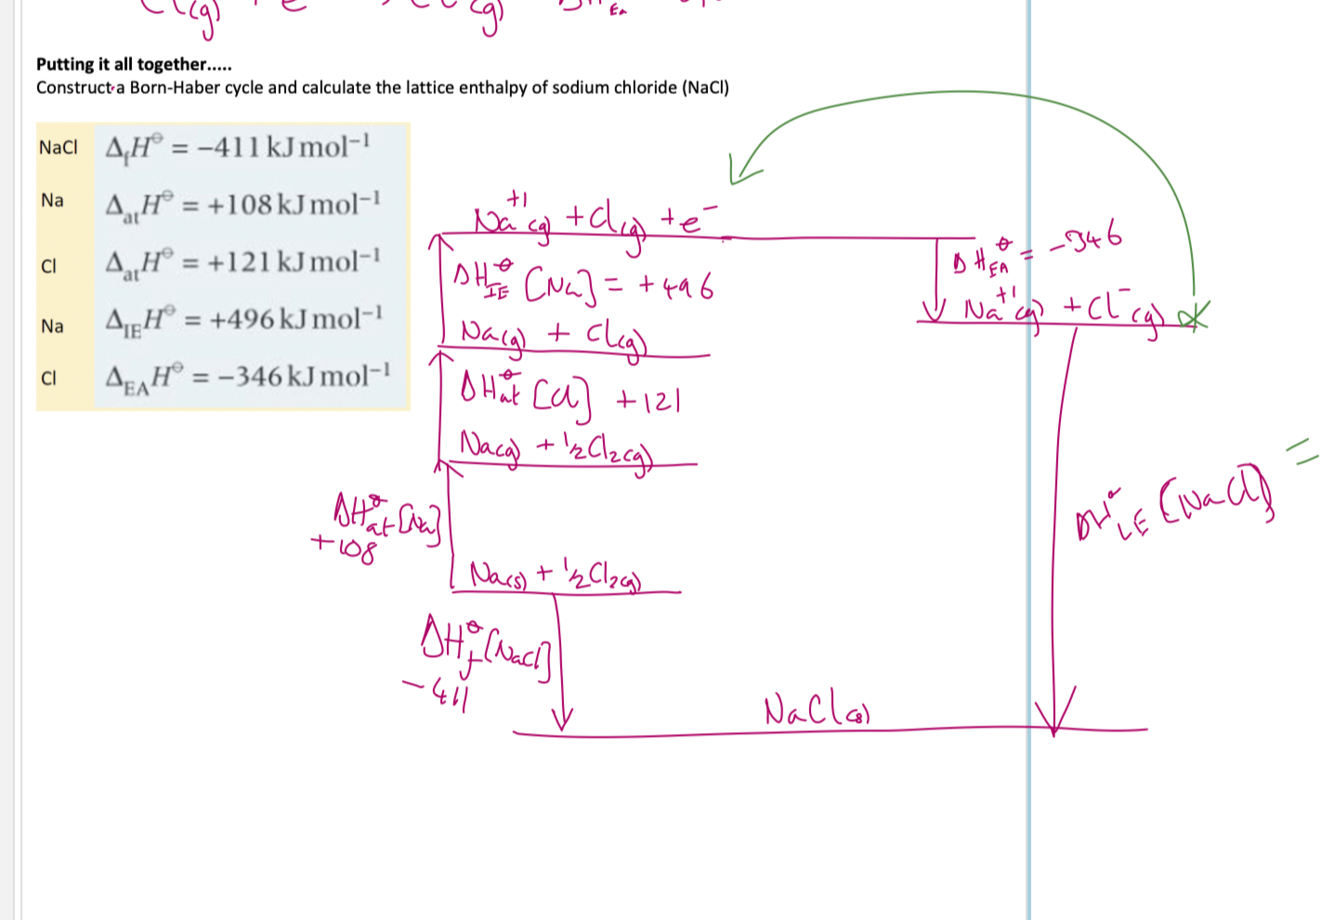 Cl(g) + e⁻ → Cl⁻(g) ΔH EA
Putting it all together.....
Construct a Born-Haber cycle and calculate the lattice enthalpy of sodium chloride (NaCl)
NaCl ΔfH⊖ = −411 kJ mol−1
Na ΔatH⊖ = +108 kJ mol−1
Cl ΔatH⊖ = +121 kJ mol−1
Na ΔIEH⊖ = +496 kJ mol−1
Cl ΔEAH⊖ = −346 kJ mol−1
Na+1(g) + Cl(g) + e−
ΔH⊖EA = −346
ΔH⊖IE [Na] = +496
Na+1(g) + Cl−(g)
Na(g) + Cl(g)
ΔH⊖at [Cl] +121
Na(g) + ½Cl2(g)
ΔH⊖at [Na]
+108
ΔH⊖LE [NaCl] =
Na(s) + ½Cl2(g)
ΔH⊖f [NaCl]
−411
NaCl(s)